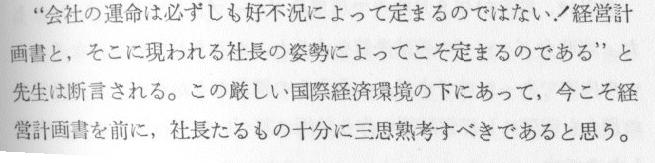 “会社の運命は必ずしも好不況によって定まるのではない！経営計
画書と，そこに現われる社長の姿勢によってこそ定まるのである”と
先生は断言される。この厳しい国際経済環境の下にあって，今こそ経
営計画書を前に，社長たるもの十分に三思熟考すべきであると思う。